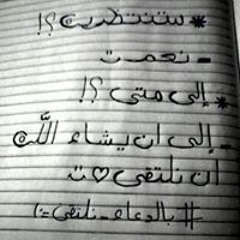 * ستنتظرين؟!
- نعمت
* إلى متى؟!
- إلى ان يشاء الله
أن نلتقي ♡ ت
# بالدعاء_نلتقي =)